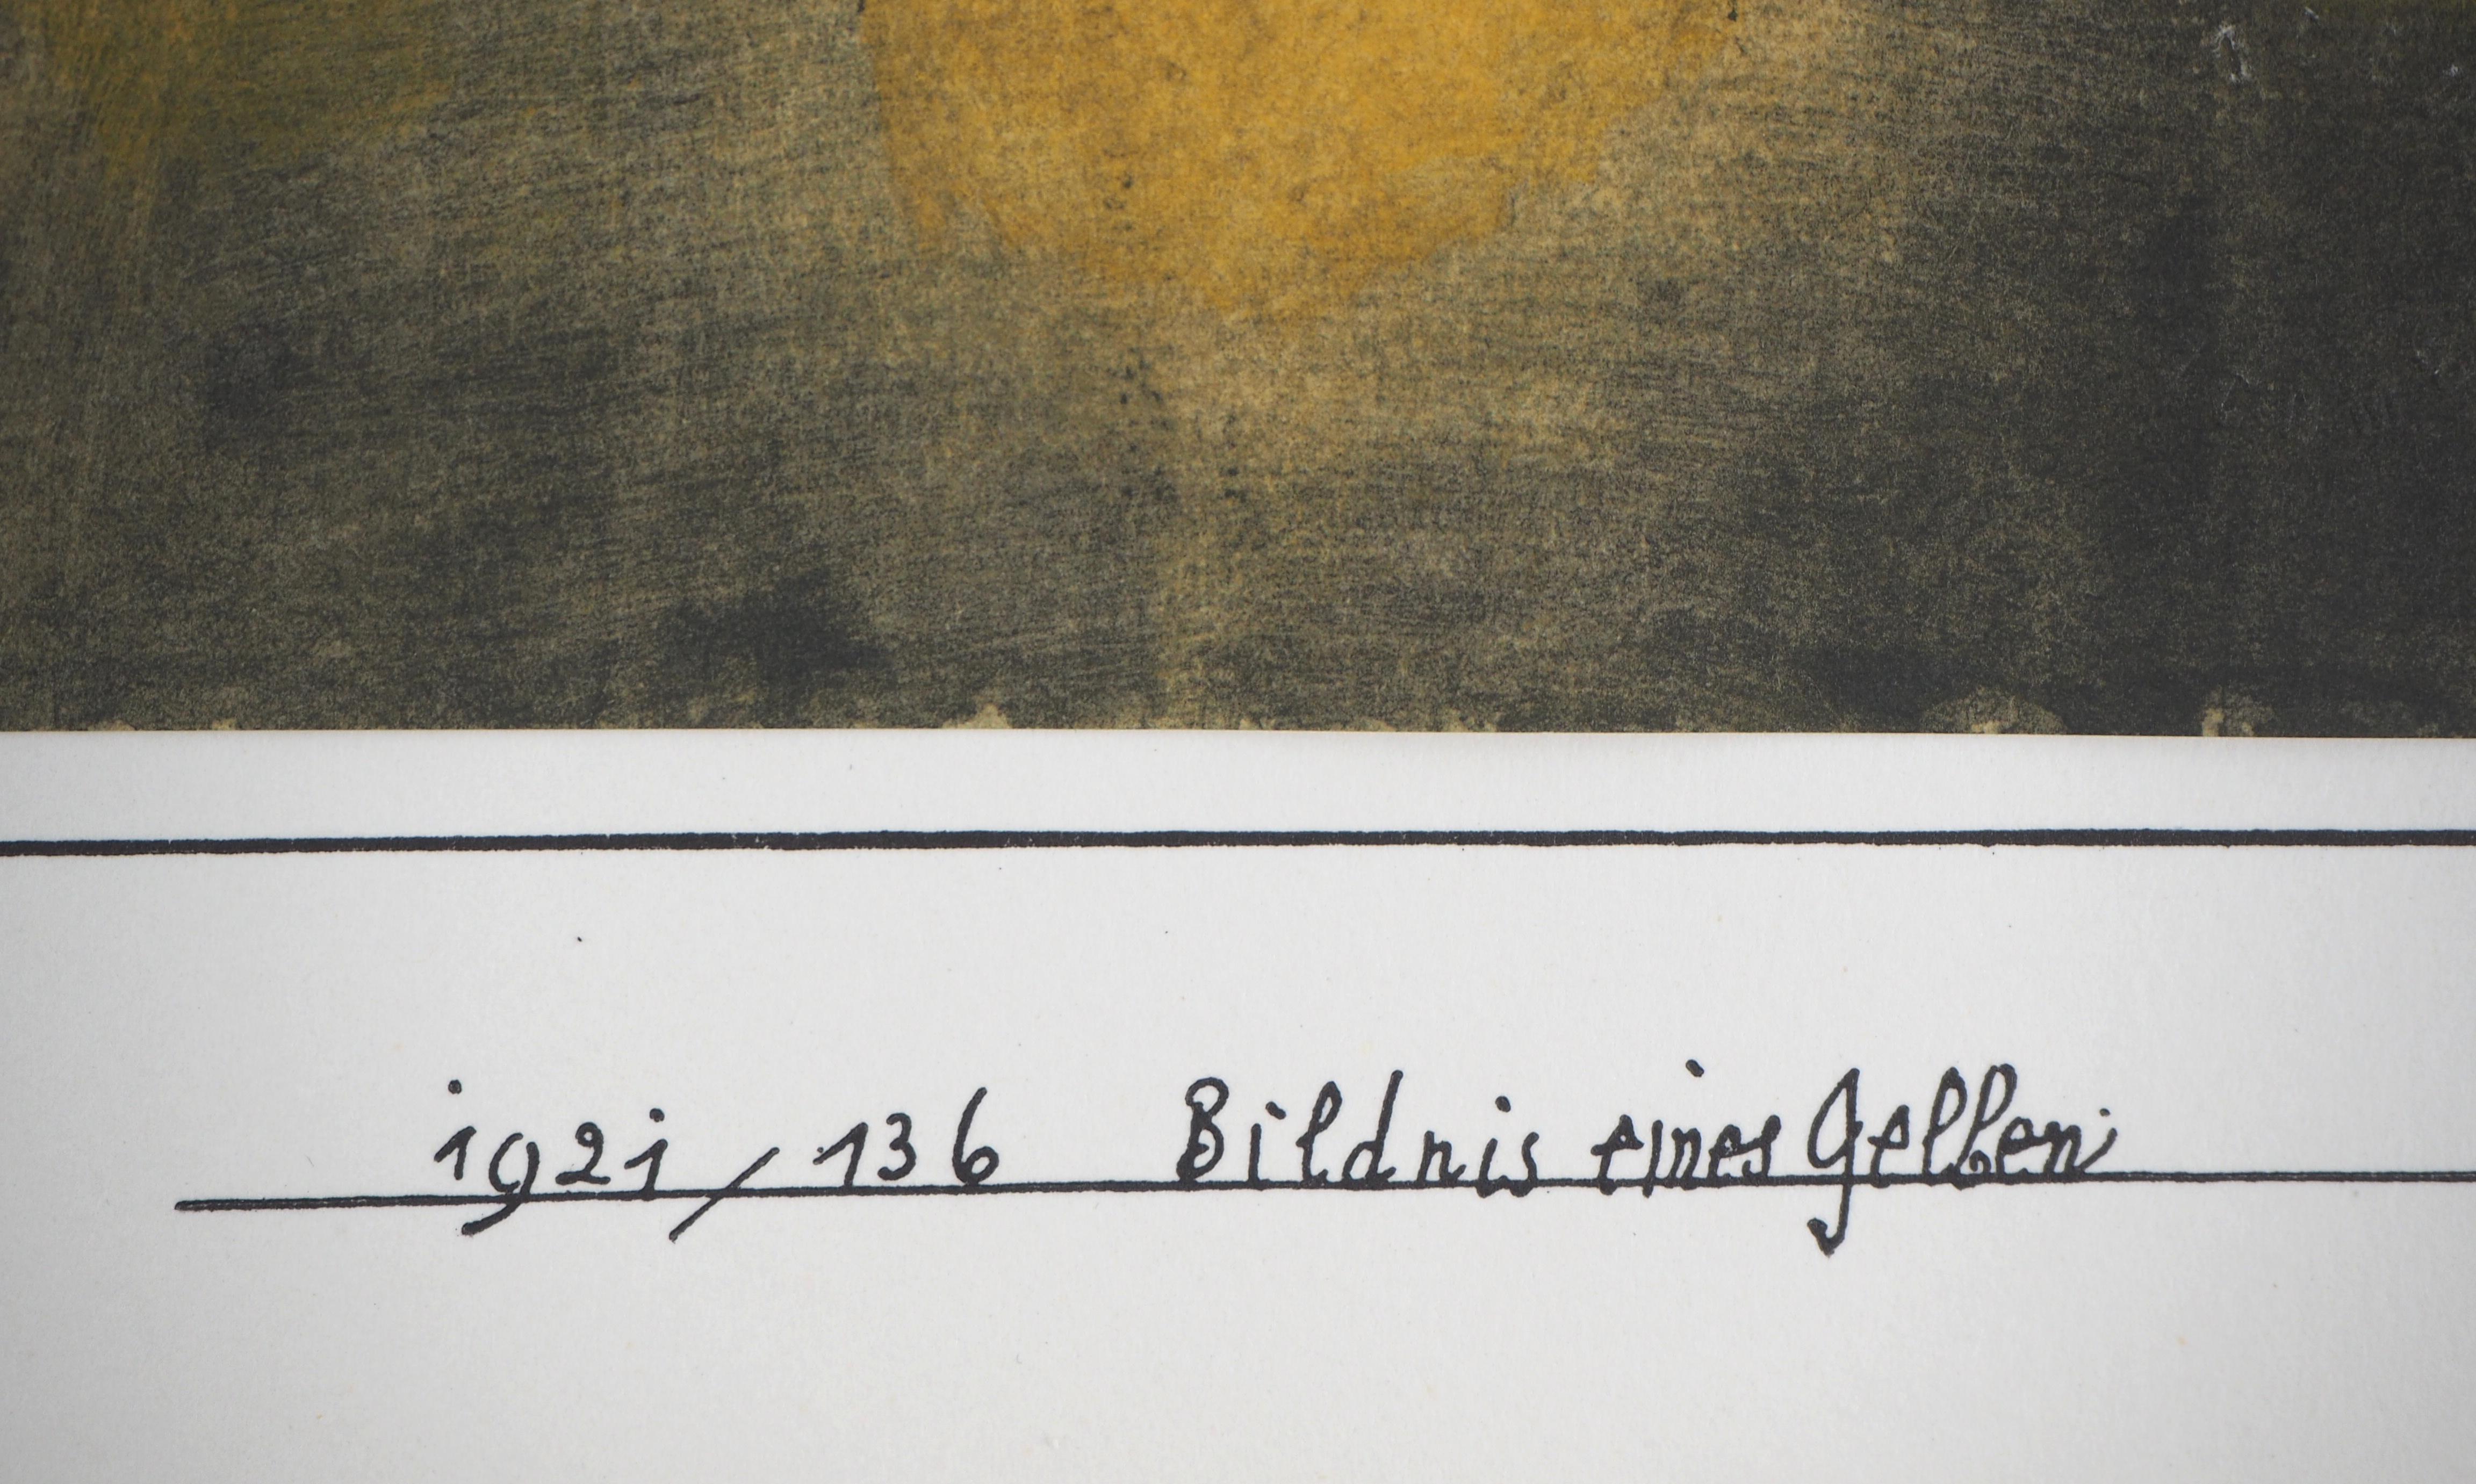 1921/136 Bildnis eines Gelben